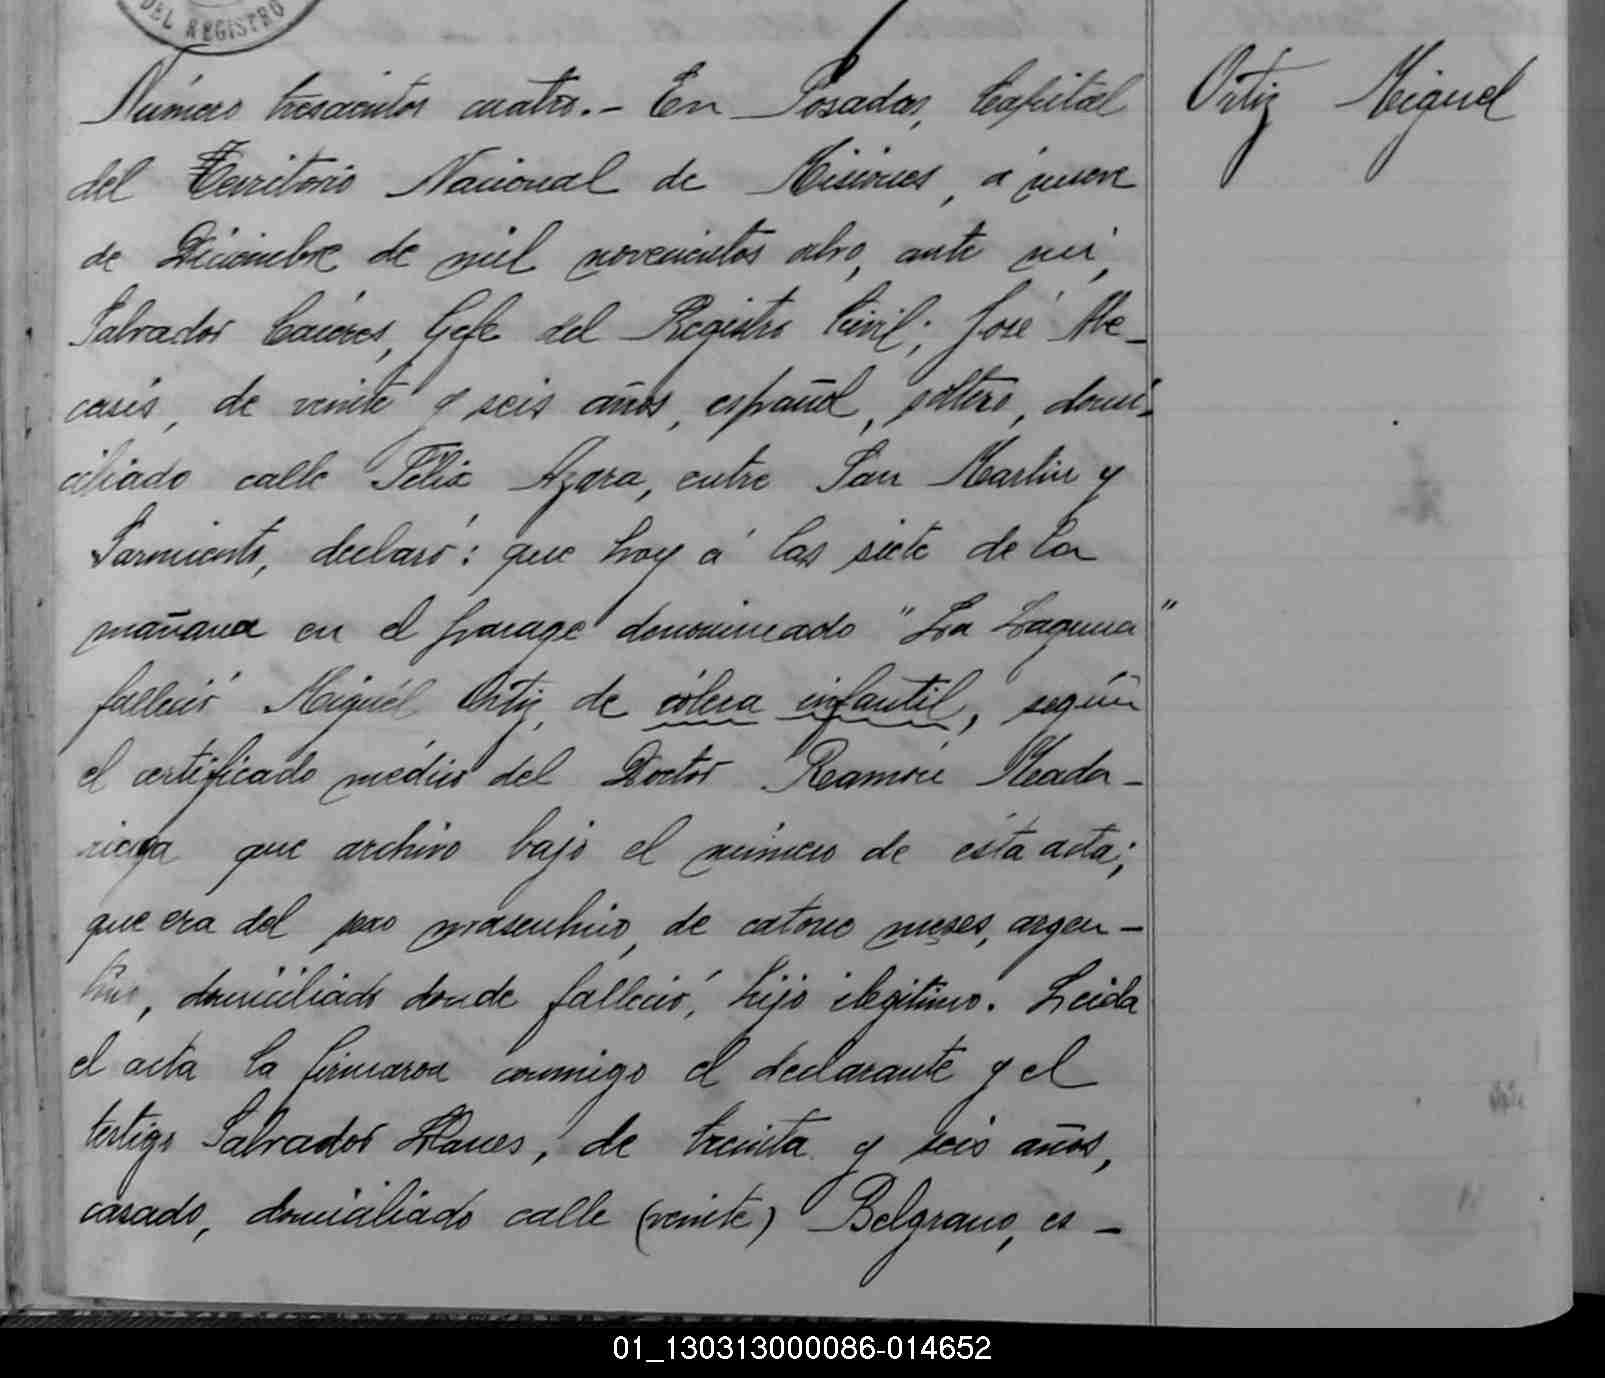 DEL REGISTRO
Número trescientos cuatro.- En Posadas, Capital
Ortiz Miguel
del Territorio Nacional de Misiones, á nueve
de Diciembre de mil novecientos ocho, ante mi,
Salvador Cáceres, Gefe del Registro Civil; José Abe-
casis, de veinte y seis años, español, soltero, domi-
ciliado calle Félix Azara, entre San Martin y
Sarmiento, declaró: que hoy á las siete de la
mañana en el parage denominado "La Laguna"
falleció Miguel Ortiz, de cólera infantil, según
el certificado médico del Doctor Ramón Mada-
riaga que archivo bajo el número de esta acta;
que era del sexo masculino, de catorce meses, argen-
tino, domiciliado donde falleció, hijo ilegitimo. Leida
el acta la firmaron conmigo el declarante y el
testigo Salvador Llanes, de treinta y seis años,
casado, domiciliado calle (veinte) Belgrano, es-
01_130313000086-014652